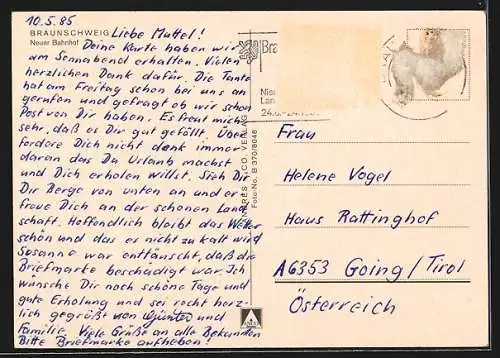 10.5.85
BRAUNSCHWEIG
Neuer Bahnhof
Liebe Muttel!
Deine Karte haben wir
am Sonnabend erhalten. Vielen
herzlichen Dank dafür. Die Tante
hat am Freitag schon bei uns an
gerufen und gefragt ob wir schon
Post von Dir haben. Es freut mich
sehr, daß es Dir gut gefällt. Über
fordere Dich nicht denk immer
daran das Du Urlaub machst
und Dich erholen willst. Sieh Dir
Die Berge von unten an und er
freue Dich an der schönen Land
schaft. Hoffendlich bleibt das Wetter
schön und das es nicht zu kalt wird
Susanne war enttänscht, daß die
Briefmarke beschädigt war. Ich
wünsche Dir noch schöne Tage und
gute Erholung und sei recht herz-
lich gegrüßt von Günter und
Familie. Viele Grüße an alle Bekannten
Bitte Briefmarke aufheben!
& CO. VERLAG
Foto-No. B 370/8048
Bra
24.
Frau
Helene Vogel
Haus Rattinghof
A6353 Going/Tirol
Österreich